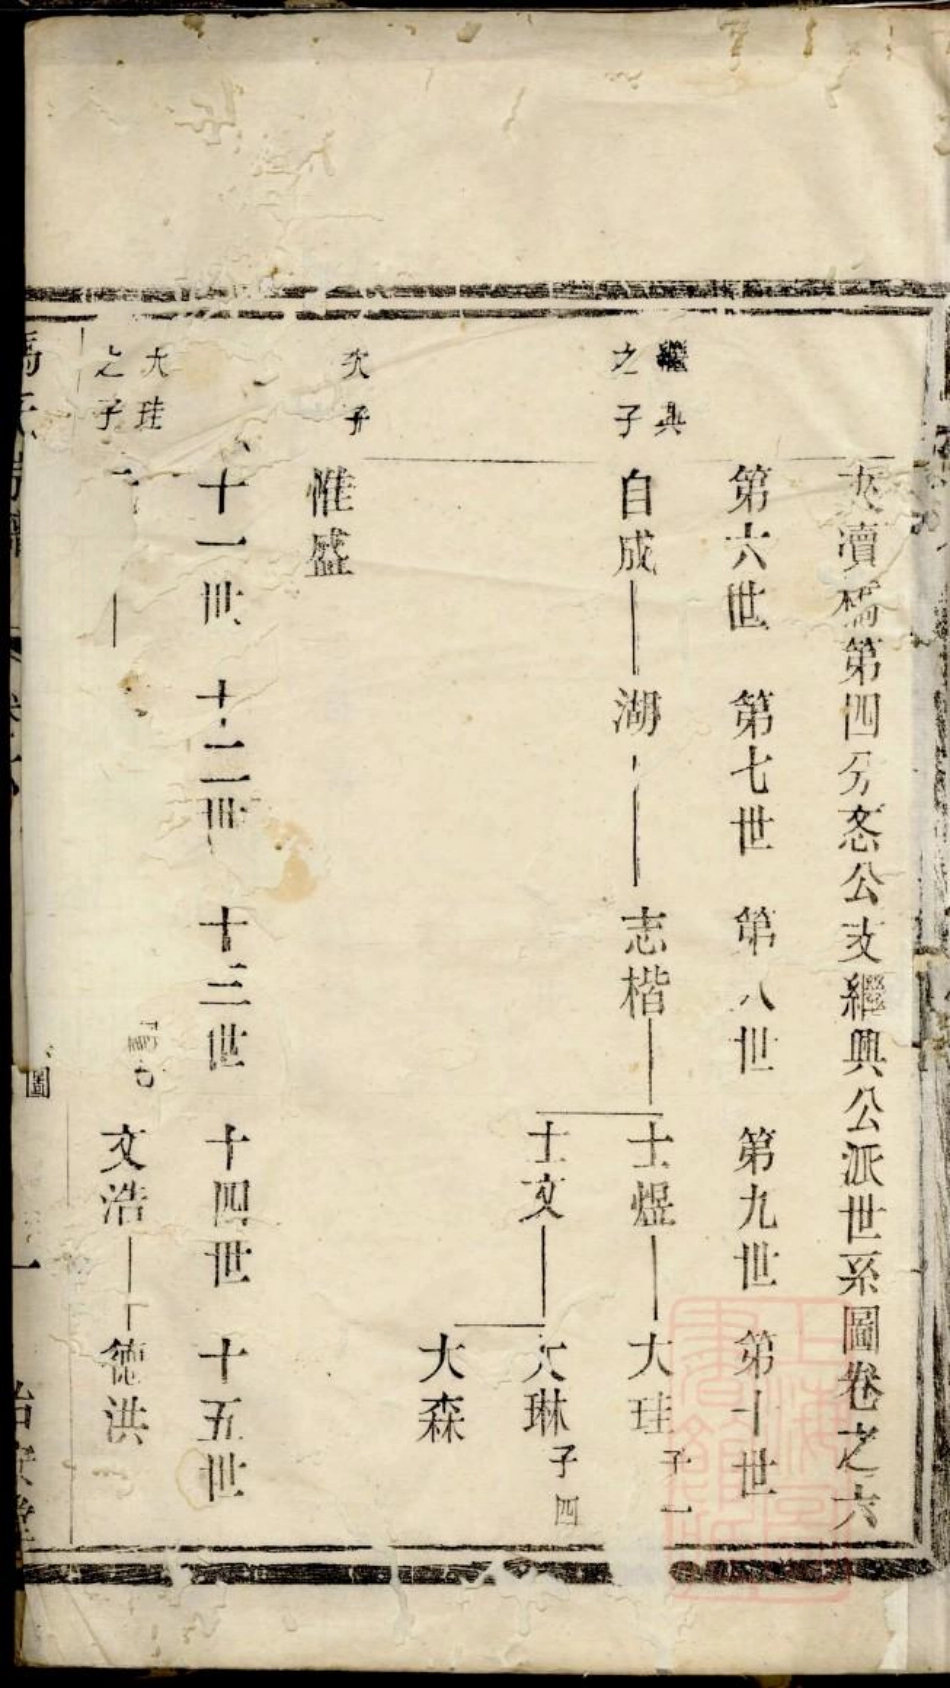 夾瀆橋第四分忞公支繼興公派世系圖卷之六
第六世 第七世 第八世 第九世 第十世
繼興
之子
自成 湖 志楷 士煜 大珪 子一
士文 大琳 子四
大森
次子
惟盛
十一世 十二世 十三世 十四世 十五世
大珪
之子
文浩 德洪
圖 一